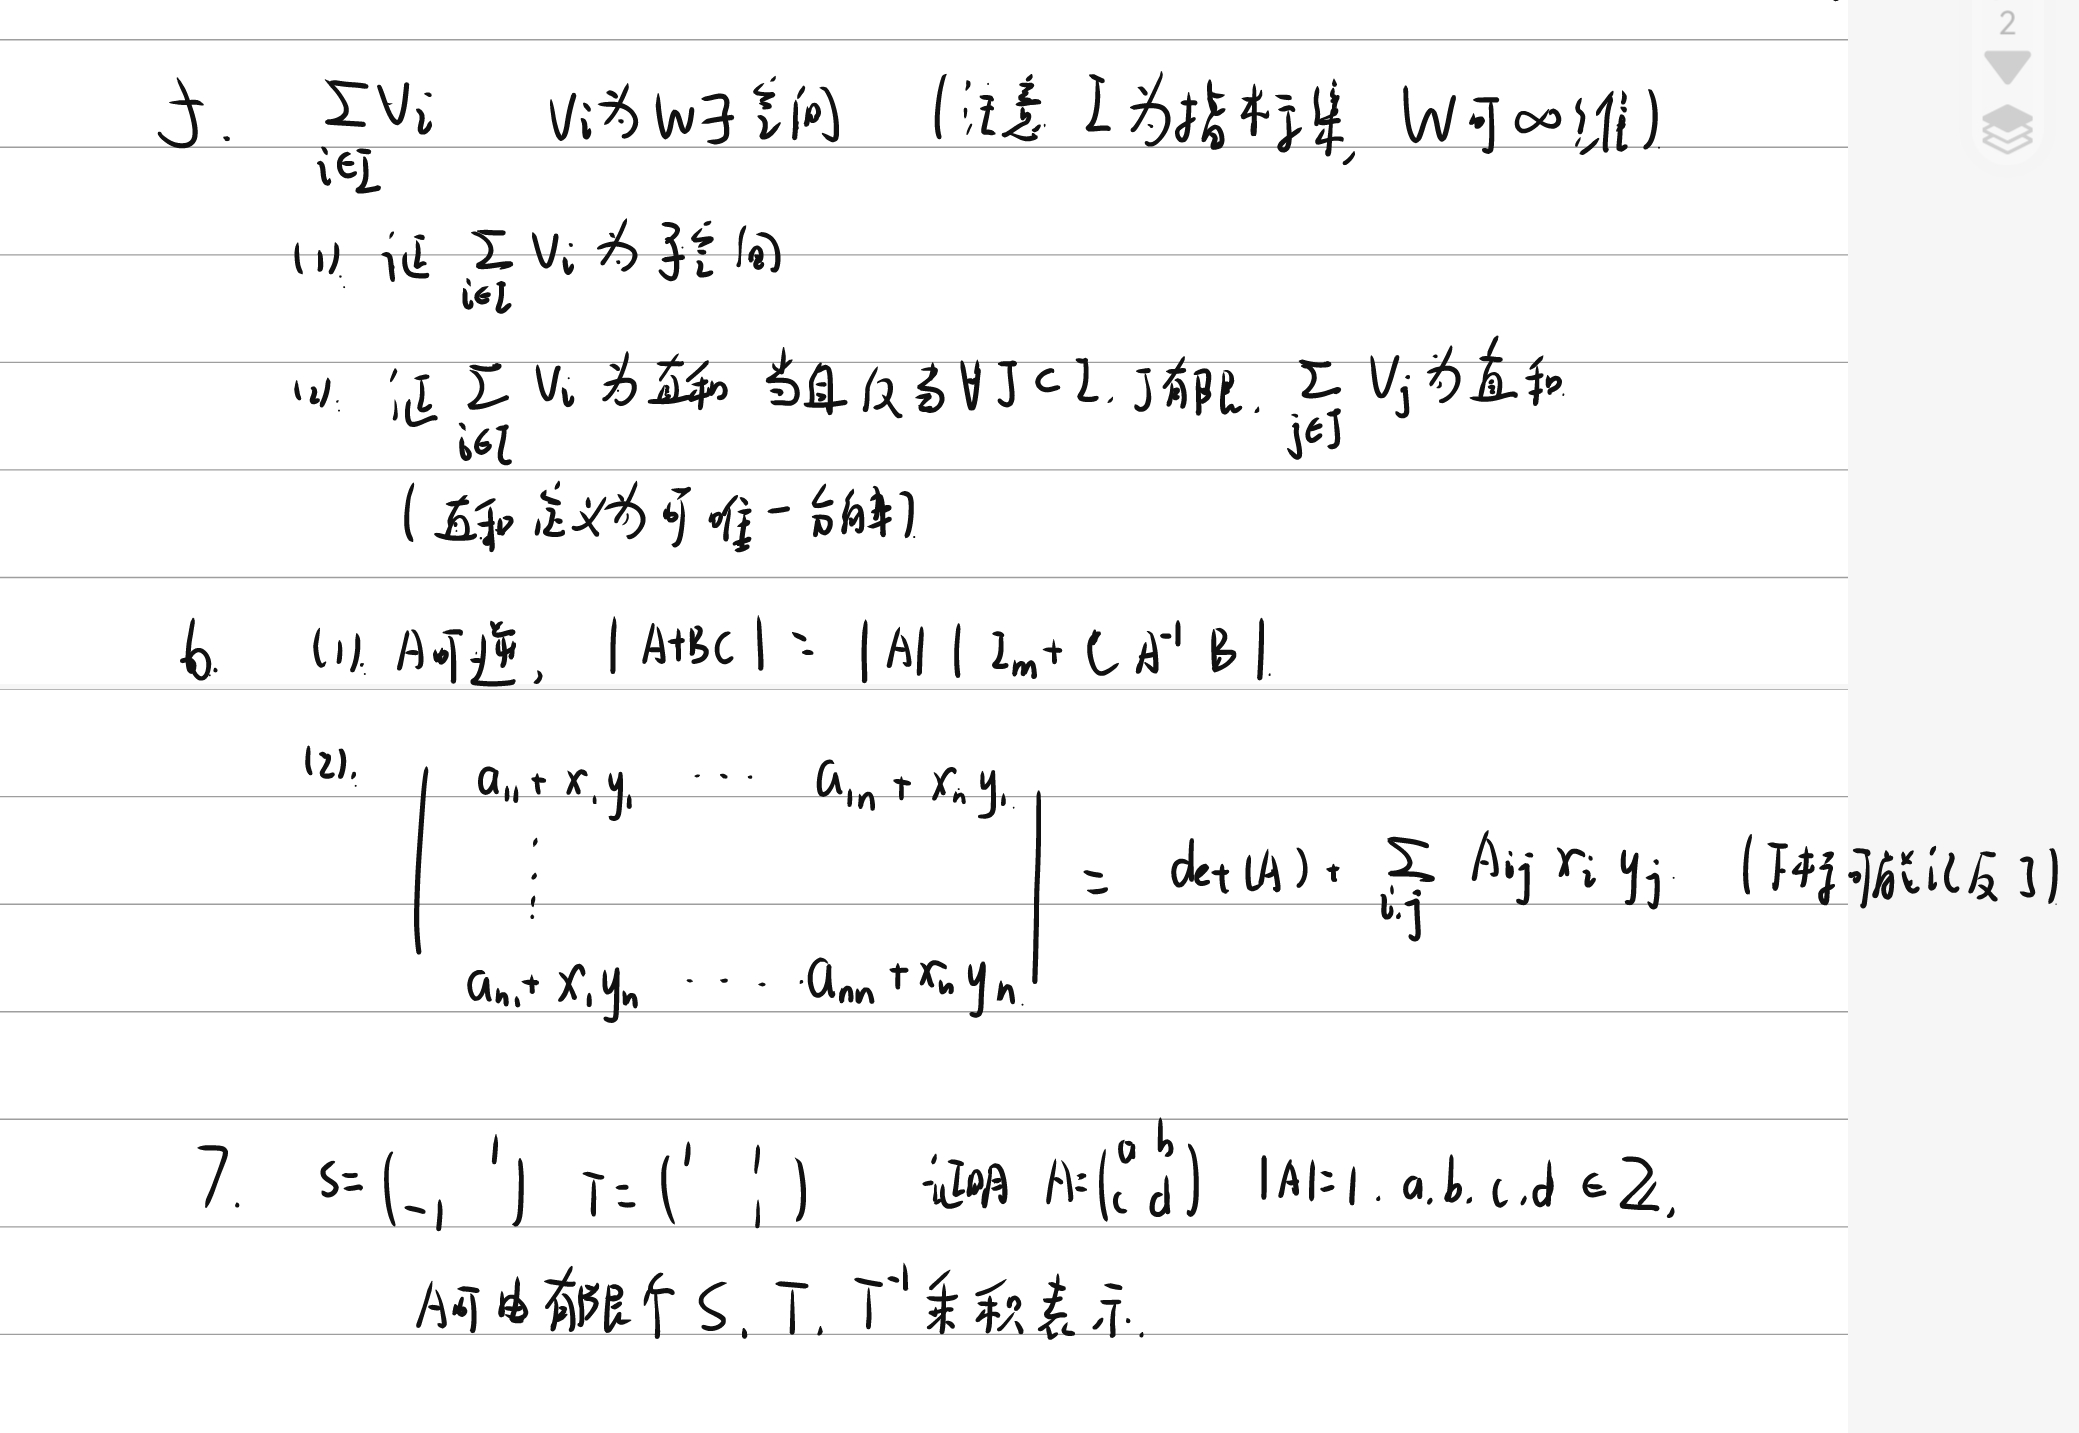 2
5. ∑_{i∈I} Vi Vi为W子空间 (注意 I 为指标集, W可∞维)
(1). 证 ∑_{i∈I} Vi 为子空间
(2). 证 ∑_{i∈I} Vi 为直和 当且仅当 ∀J⊂I. J有限. ∑_{j∈J} Vj 为直和
(直和定义为可唯一分解)
6. (1). A可逆, |A+BC| = |A| |Im + C A⁻¹ B|.
(2). | a₁₁ + x₁y₁ ··· a₁n + xn y₁ |
⋮ = det(A) + ∑_{i,j} Aij xi yj (下标可能记反了)
| an₁ + x₁yn ··· ann + xn yn |
7. S = ( 1 ; -1 ) T = ( 1 1 ; 1 ) 证明 A = ( a b ; c d ) |A|=1. a.b.c.d ∈ ℤ,
A可由有限个 S. T. T⁻¹ 乘积表示.